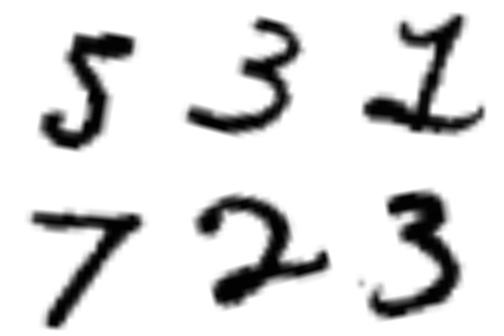 5 3 1
7 2 3